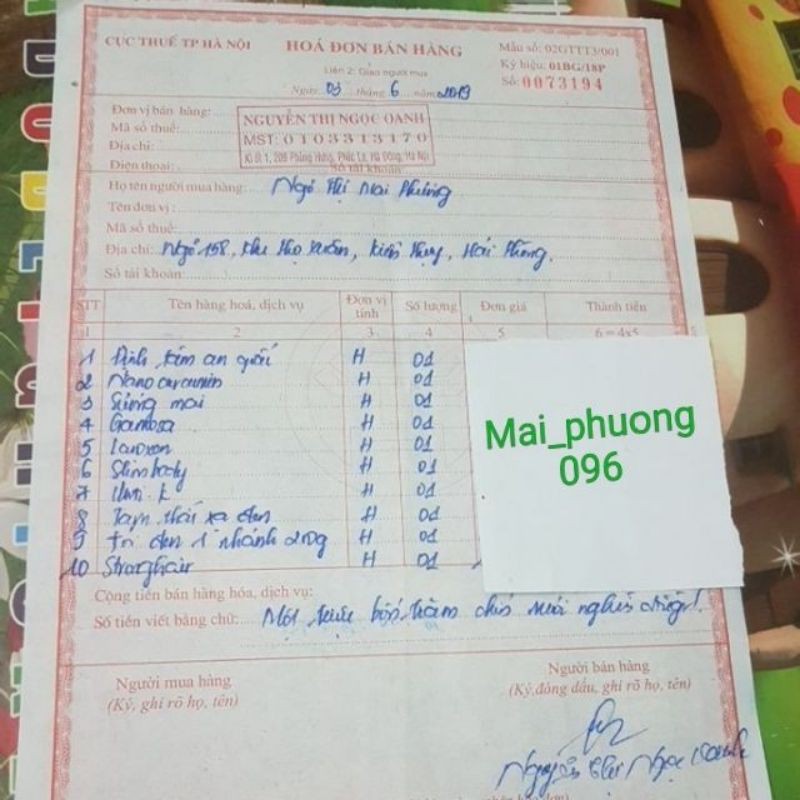 CỤC THUẾ TP HÀ NỘI
HOÁ ĐƠN BÁN HÀNG
Mẫu số: 02GTTT3/001
Liên 2: Giao người mua
Ký hiệu: 01BG/18P
Ngày 03 tháng 6 năm 2019
Số: 0073194
Đơn vị bán hàng:
NGUYỄN THỊ NGỌC OANH
Mã số thuế:
MST: 0103313170
Địa chỉ:
Ki ốt 1, 208 Phùng Hưng, Phúc La, Hà Đông, Hà Nội
Điện thoại:
Số tài khoản
Họ tên người mua hàng: Ngô Thị Mai Phương
Tên đơn vị:
Mã số thuế:
Địa chỉ: Ngõ 158, khu Thọ Xuân, Kiến Thụy, Hải Phòng.
Số tài khoản:
STT Tên hàng hoá, dịch vụ Đơn vị tính Số lượng Đơn giá Thành tiền
1 2 3 4 5 6 = 4x5
1 Định tâm an H 01
2 Nano curcumin H 01
3 mai H 01
4 Gamosa H 01
5 H 01
6 Slimbody H 01
7 H 01
8 Tam thất xạ đen H 01
9 Tỏi đen 1 nhánh 200g H 01
10 Stronghair H 01
Mai_phuong
096
Cộng tiền bán hàng hóa, dịch vụ:
Số tiền viết bằng chữ: Một triệu bốn trăm chín mươi nghìn
Người mua hàng
Người bán hàng
(Ký, ghi rõ họ, tên)
(Ký, đóng dấu, ghi rõ họ, tên)
Nguyễn Thị Ngọc Oanh